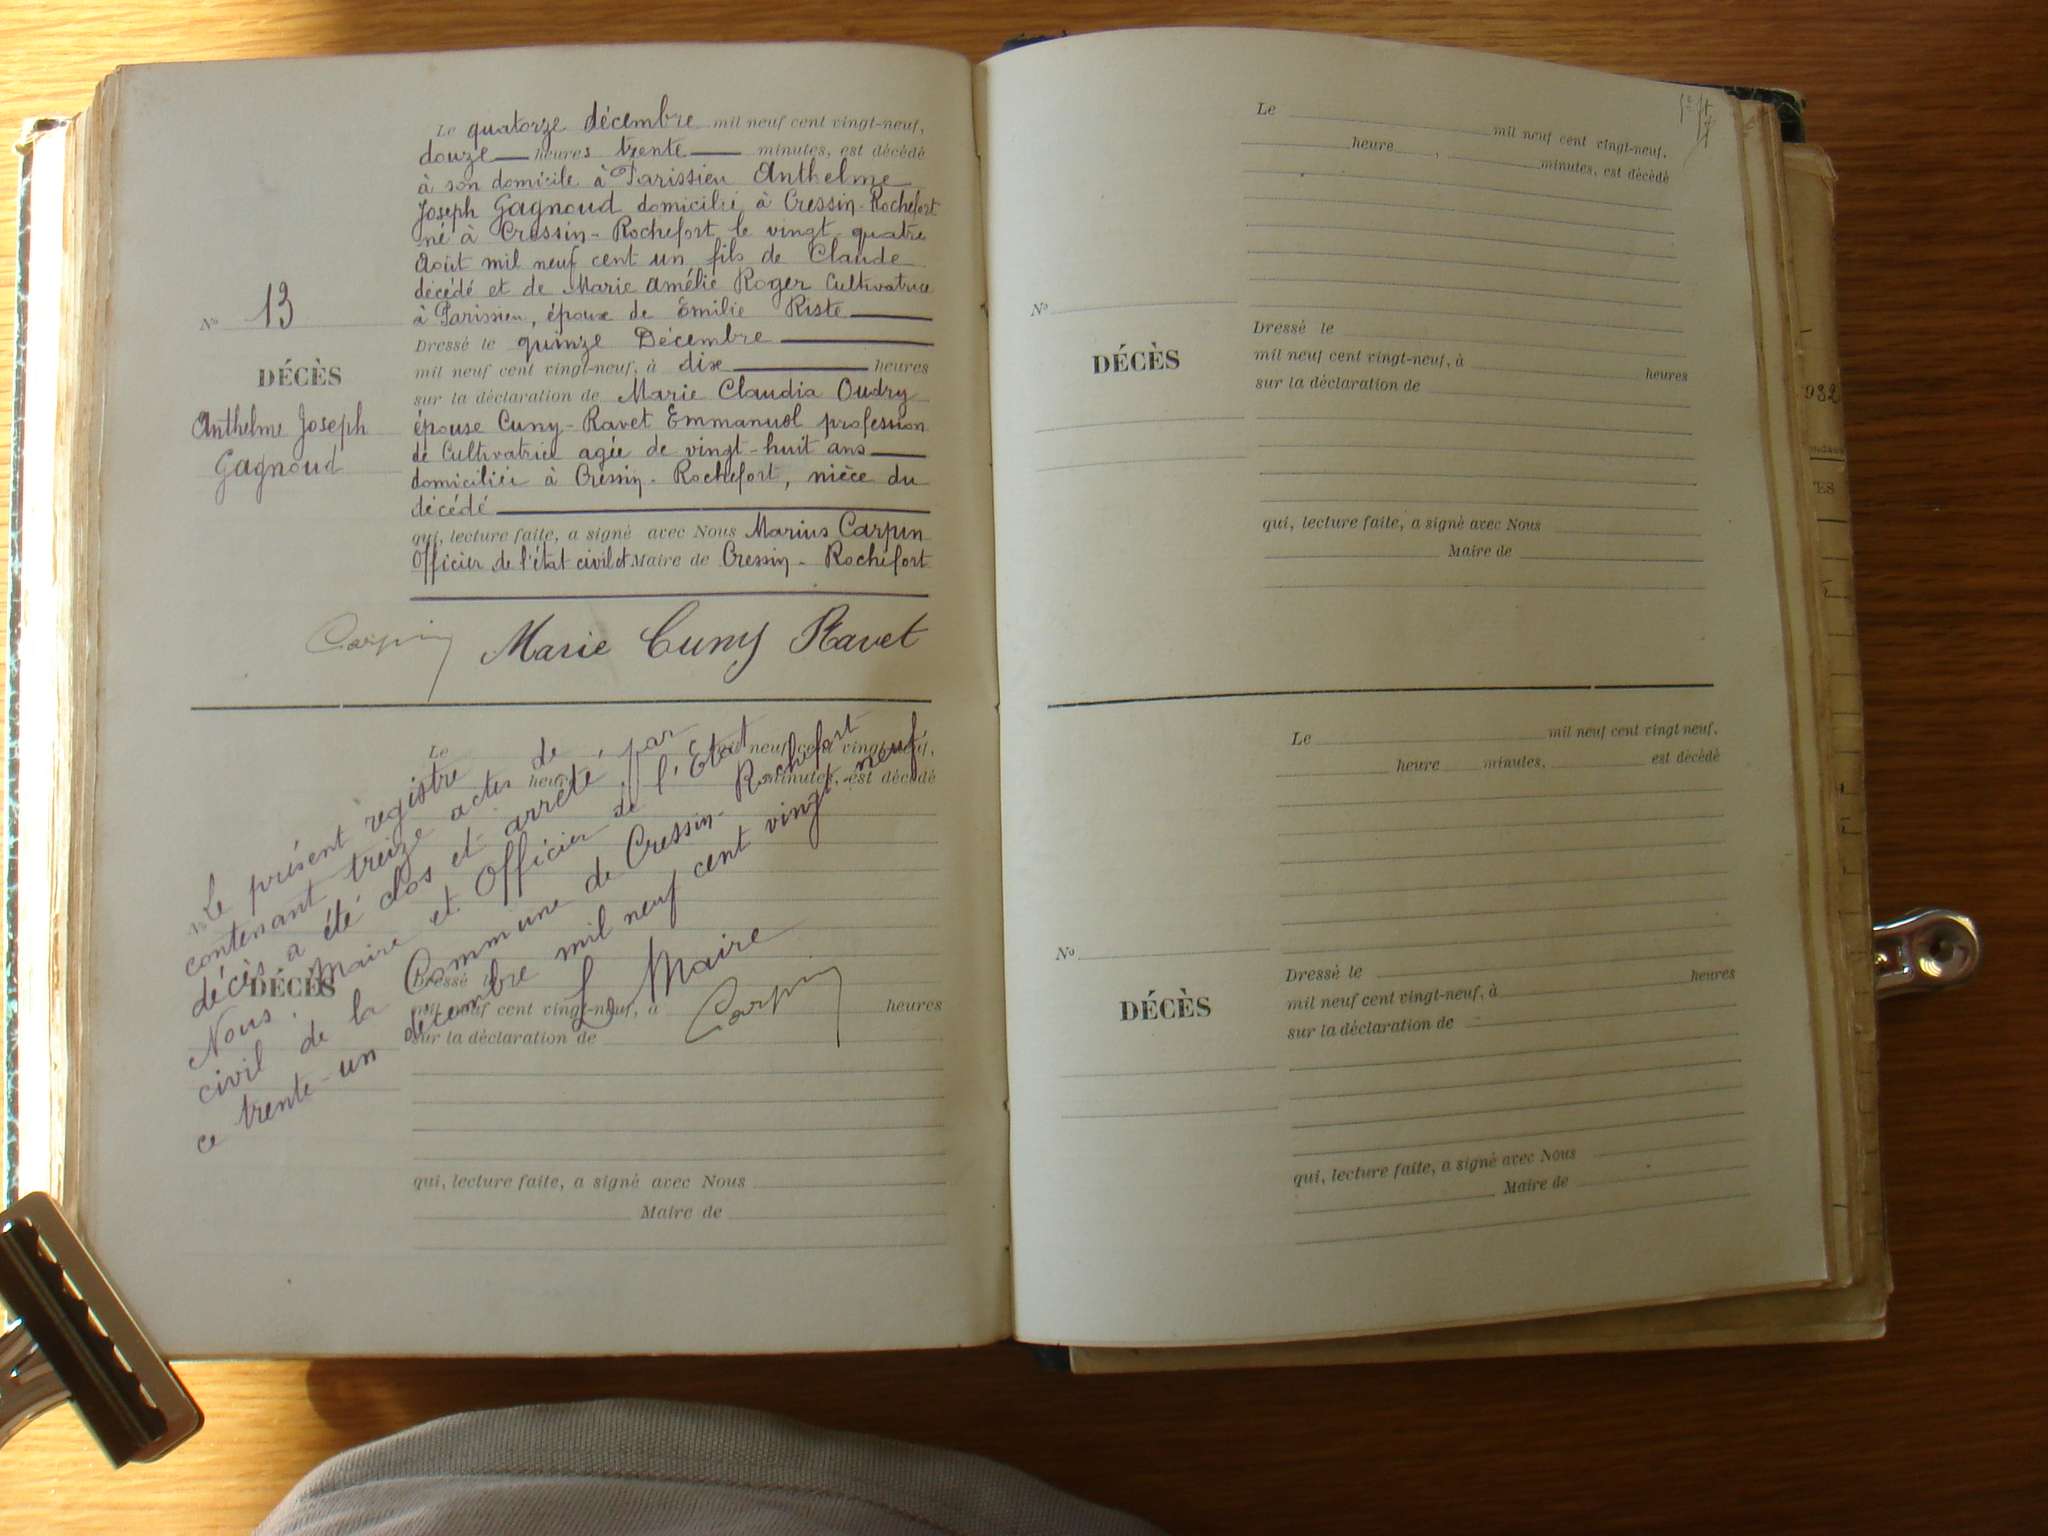 Le quatorze décembre mil neuf cent vingt-neuf,
douze heures trente minutes, est décédé
à son domicile à Parissieu Anthelme
Joseph Gagnoud domicilié à Cressin-Rochefort
né à Cressin-Rochefort le vingt-quatre
Août mil neuf cent un fils de Claude
décédé et de Marie Amélie Roger Cultivatrice
à Parissieu, époux de Emilie Riste
Dressé le quinze Décembre
mil neuf cent vingt-neuf, à dix heures
sur la déclaration de Marie Claudia Oudry
épouse Cuny-Ravet Emmanuel profession
de Cultivatrice agée de vingt-huit ans
domiciliée à Cressin-Rochefort, nièce du
décédé
qui, lecture faite, a signé avec Nous Marius Carpin
Officier de l'état civil et Maire de Cressin-Rochefort
No 13
DÉCÈS
Anthelme Joseph
Gagnoud
Carpin Marie Cuny Ravet
Le mil neuf cent vingt-neuf,
heure minutes, est décédé
No
DÉCÈS
Dressé le
mil neuf cent vingt-neuf, à heures
sur la déclaration de
qui, lecture faite, a signé avec Nous
Maire de
Le présent registre de
contenant treize actes de
décès a été clos et arrêté par
Nous, Maire et Officier de l'Etat
civil de la Commune de Cressin-Rochefort
ce trente-un décembre mil neuf cent vingt neuf
Le Maire
Carpin
Le mil neuf cent vingt-neuf,
heure , minutes, est décédé
No
DÉCÈS
Dressé le
mil neuf cent vingt-neuf, à heures
sur la déclaration de
qui, lecture faite, a signé avec Nous
Maire de
Le mil neuf cent vingt-neuf,
heure minutes, est décédé
No
DÉCÈS
Dressé le
mil neuf cent vingt-neuf, à heures
sur la déclaration de
qui, lecture faite, a signé avec Nous
Maire de
932